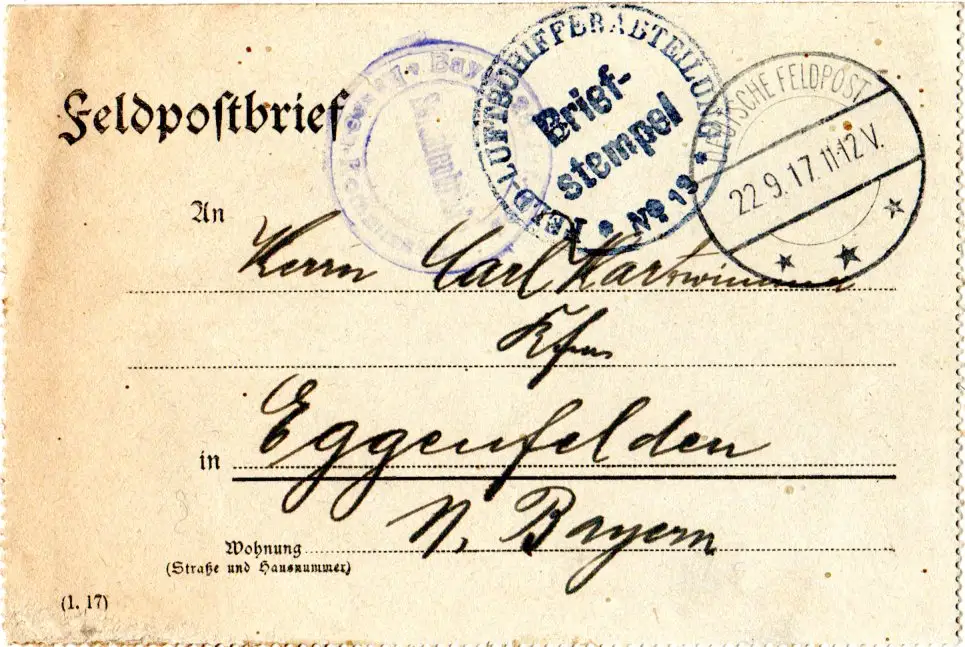 Feldpostbrief
FELD-LUFTSCHIFFERABTEILUNG
Brief-
stempel
* No 19 *
DEUTSCHE FELDPOST
22.9.17. 11-12 V.
An
Herrn Carl
Kfm
in Eggenfelden
N. Bayern
Wohnung
(Straße und Hausnummer)
(1. 17)